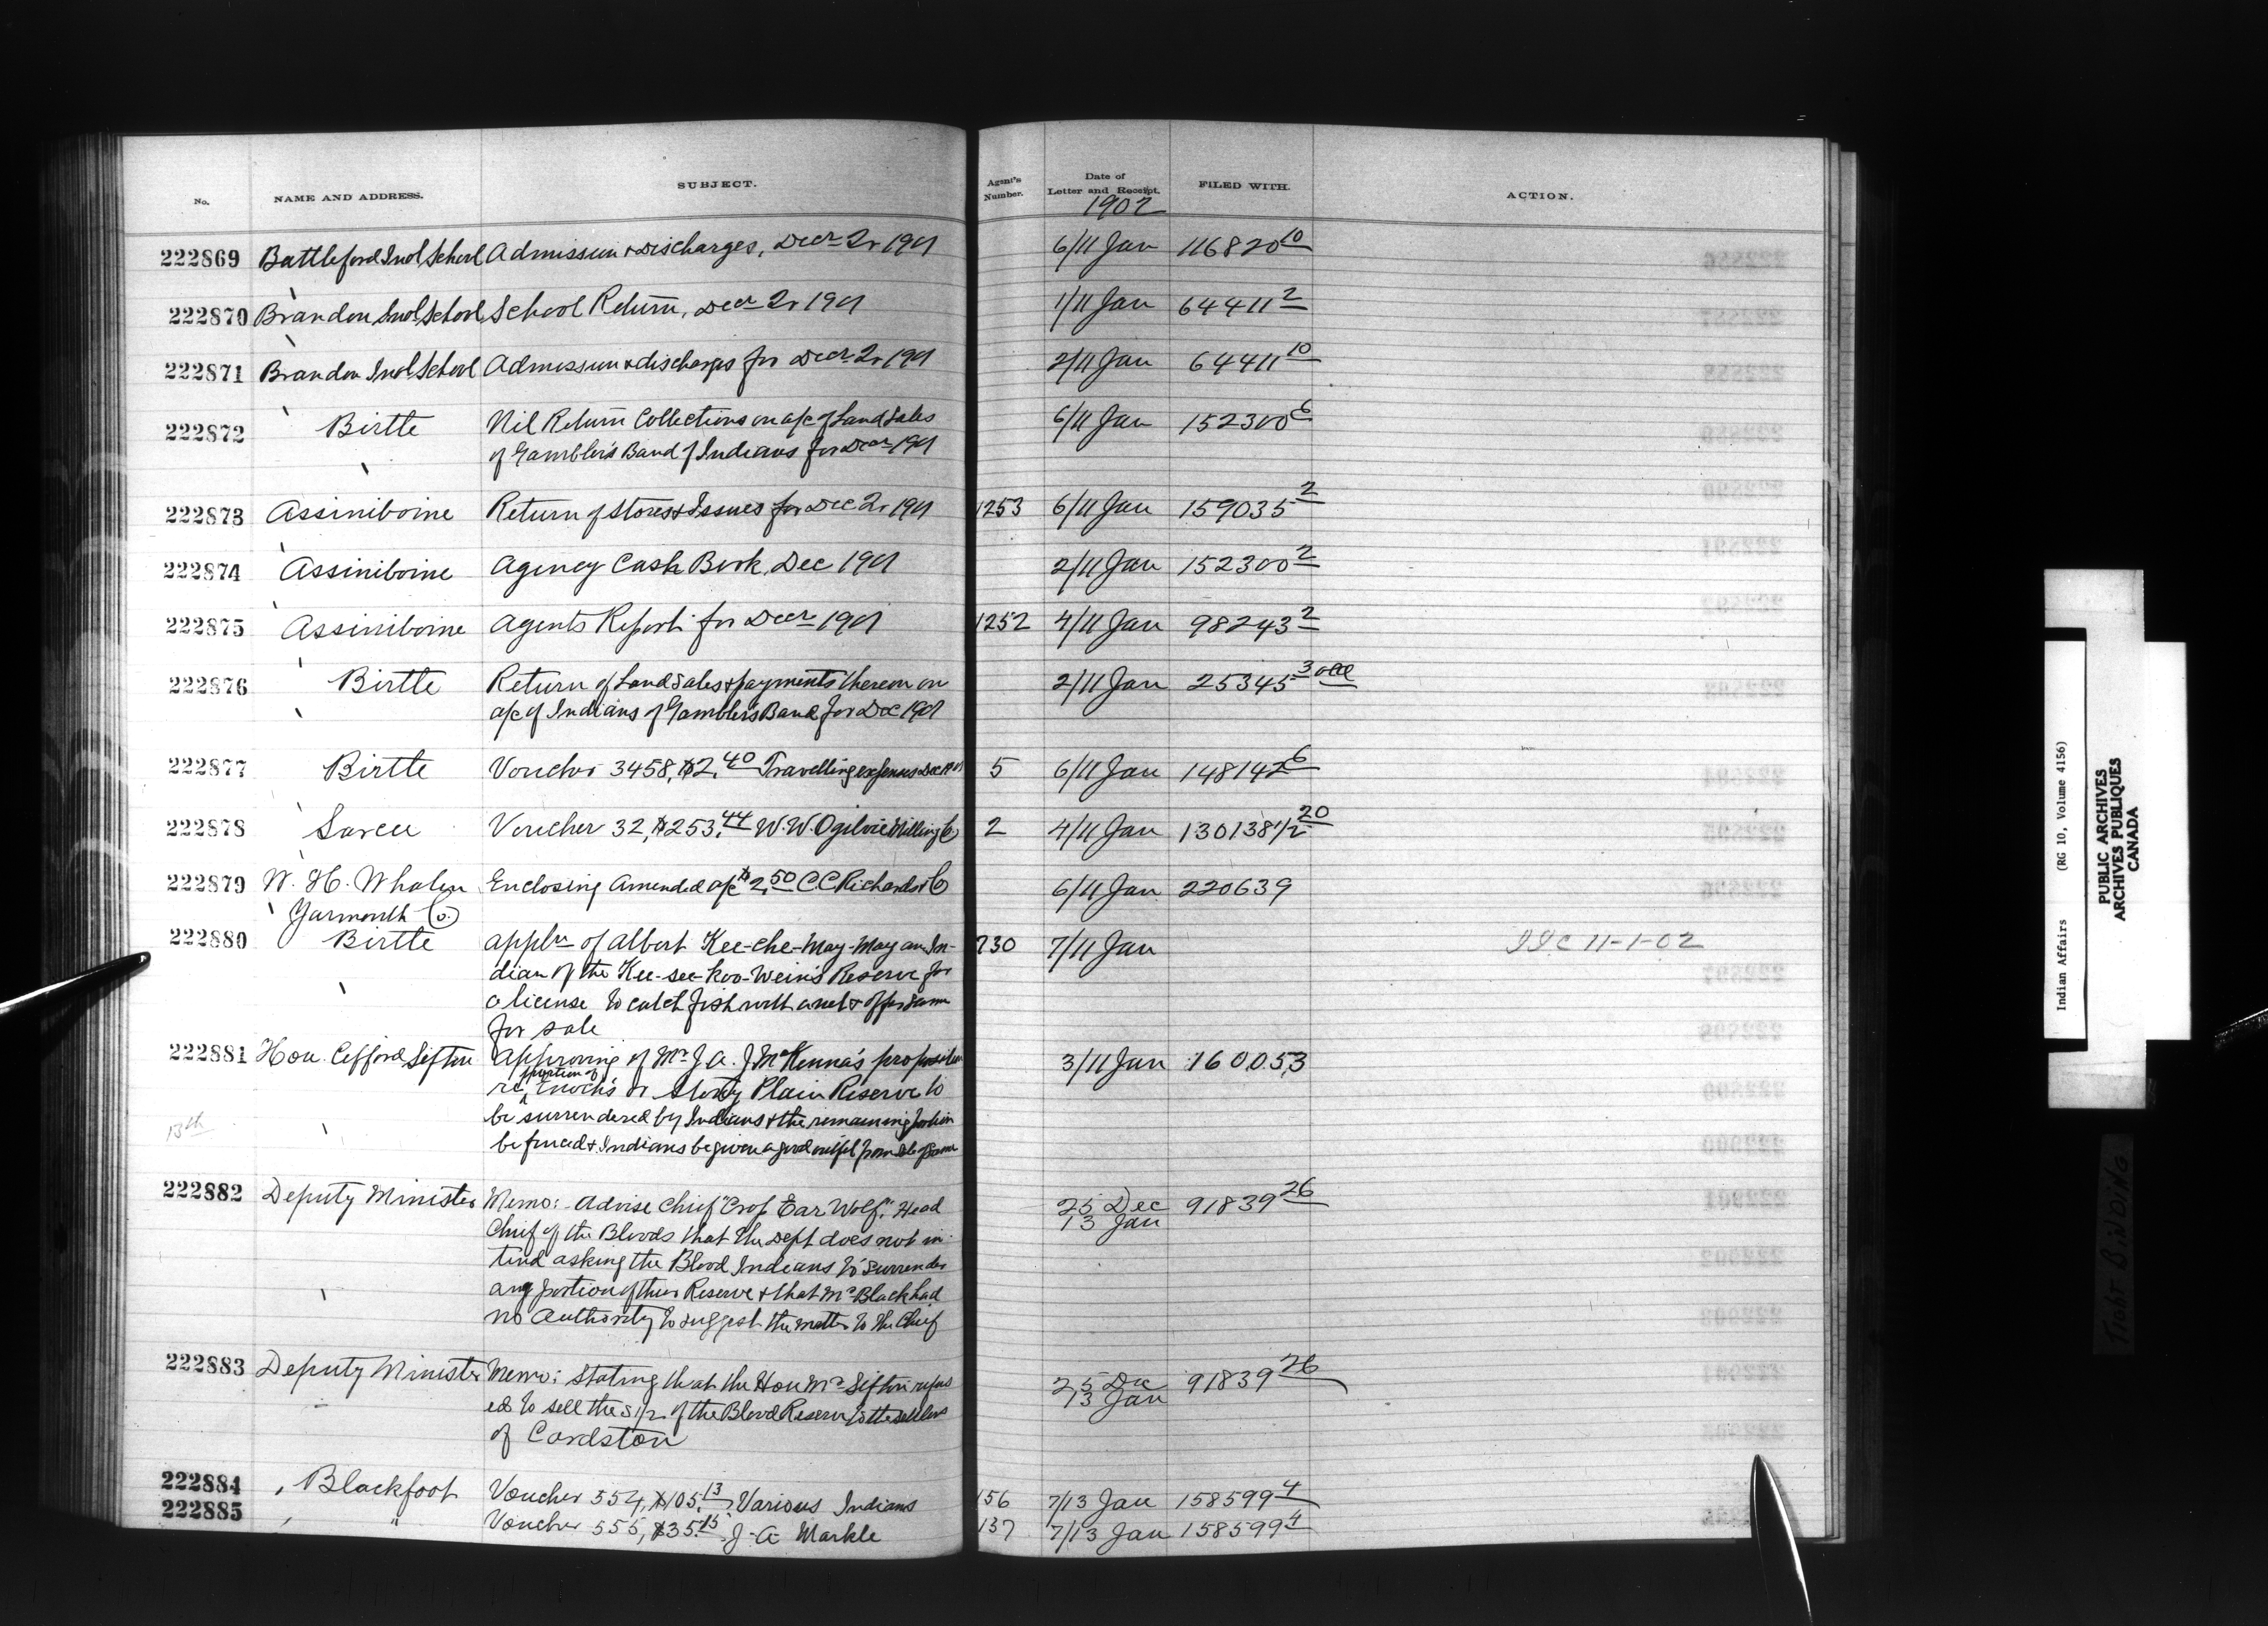 No. NAME AND ADDRESS. SUBJECT. Agent's Number. Date of Letter and Receipt. FILED WITH. ACTION.
1902
222869 Battleford Indl School Admission & Discharges, Decr 2r 1901 6/11 Jan 116820 10
222870 Brandon Indl School School Return, Decr 2r 1901 1/11 Jan 64411 2
222871 Brandon Indl School Admission & discharges for Decr 2r 1901 2/11 Jan 64411 10
222872 Birtle Nil Return Collections on a/c of Land Sales 6/11 Jan 152300 6
of Gambler's Band of Indians for Decr 1901
222873 Assiniboine Return of Stores & Issues for Dec 2r 1901 1253 6/11 Jan 159035 2
222874 Assiniboine Agency Cash Book, Dec 1901 2/11 Jan 152300 2
222875 Assiniboine Agents Report for Decr 1901 1252 4/11 Jan 98243 2
222876 Birtle Return of Land Sales & payments thereon on 2/11 Jan 25345 3
a/c of Indians of Gamblers Band for Dec 1901
222877 Birtle Voucher 3458, $2.40 Travelling expenses Dec 1901 5 6/11 Jan 148142 6
222878 Sarcee Voucher 32, $253.44 W. W. Ogilvie Milling Co 2 4/11 Jan 130138 1/2 20
222879 W. H. Whalen Enclosing Amended a/c $2.50 C. C. Richards & Co 6/11 Jan 220639
Yarmouth Co.
222880 Birtle Appln of Albert Kee-che-may-may an In- 730 7/11 Jan IIC 11-1-02
dian of the Kee-see-koo-wein's Reserve for
a license to catch fish with a net & offer same
for sale
222881 Hon. Cifford Sifton Approving of Mr J. A. J. McKenna's proposition 3/11 Jan 160,053
re portion of Enoch's or Stony Plain Reserve to
be surrendered by Indians & the remaining portion
be fenced & Indians be given a good outfit from sale of same
13th
222882 Deputy Minister Memo: Advise Chief "Crop Ear Wolf", Head 25 Dec 91839 26
13 Jan
Chief of the Bloods that the Dept does not in-
tend asking the Blood Indians to surrender
any portion of their Reserve & that Mr Black had
no Authority to suggest the matter to the Chief
222883 Deputy Minister Memo: Stating that the Hon Mr Sifton refus 25 Dec 91839 26
13 Jan
ed to sell the S 1/2 of the Blood Reserve to the settlers
of Cardston
222884 Blackfoot Voucher 554, $105.13, Various Indians 156 7/13 Jan 158599 4
222885 " Voucher 555, $35.15 J. A. Markle 137 7/13 Jan 158599 4
Indian Affairs (RG 10, Volume 4156)
PUBLIC ARCHIVES
ARCHIVES PUBLIQUES
CANADA
TIGHT BINDING